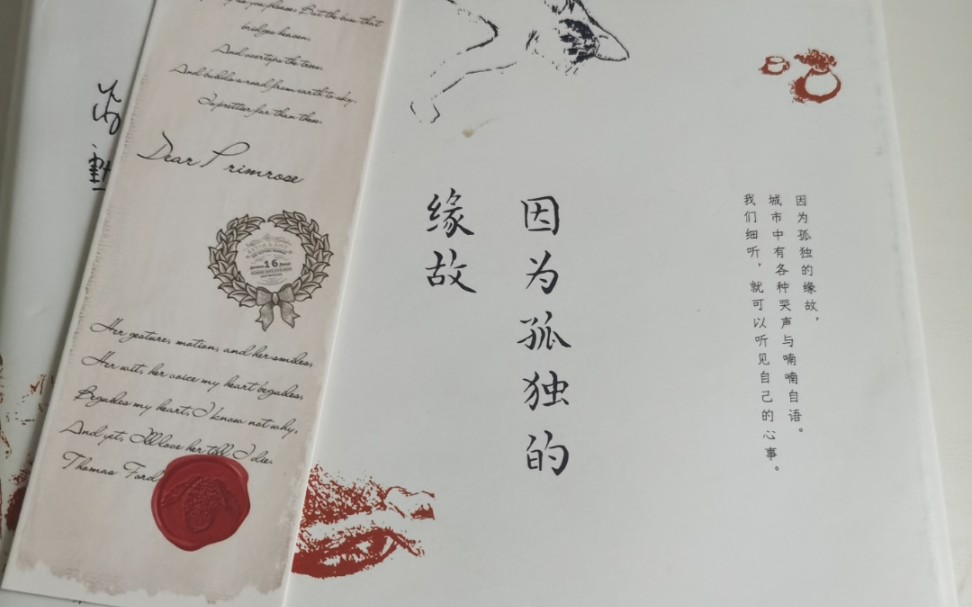 bridges heaven
And overtops the trees
And builds a road from earth to sky,
Is prettier far than these.
Dear Primrose
16
Her gesture, motion, and her smiles,
Her wit, her voice my heart beguiles,
Beguiles my heart, I know not why,
And yet, I'll love her till I die.
Thomas Ford
因为孤独的
缘故
因为孤独的缘故，
城市中有各种哭声与喃喃自语。
我们细听，就可以听见自己的心事。